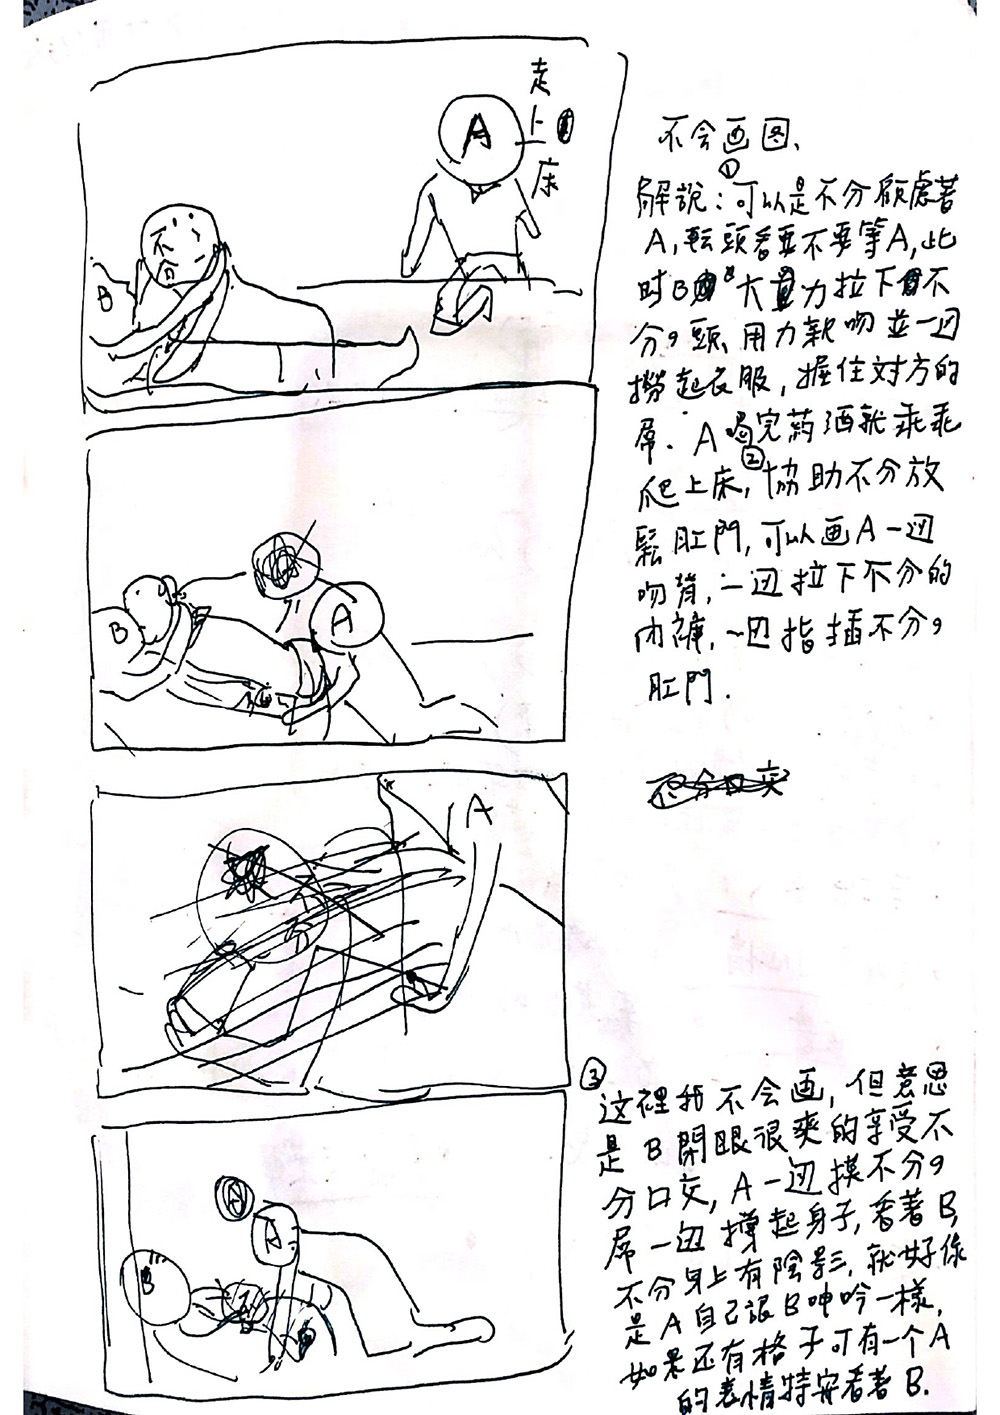 走
上
床
A
不
分
B
不会画图、
①
解說：可以是不分顧慮著
A，転頭看要不要等A，此
時B 大力拉下不
分の頭、用力親吻並一边
撈起衣服，握住対方的
屌．A喝完药酒就乖乖
②
爬上床，協助不分放
鬆肛門，可以画A一边
吻背，一边拉下不分的
内褲，一边指插不分の
肛門．
B
A
A
③
这裡我不会画，但意思
是B閉眼很爽的享受不
分口交，A一边摸不分の
屌一边撐起身子，看著B，
不分身上有陰影，就好像
是A自己讓B呻吟一樣，
如果还有格子可有一个A
的表情特写看著B．
A
A
B
不